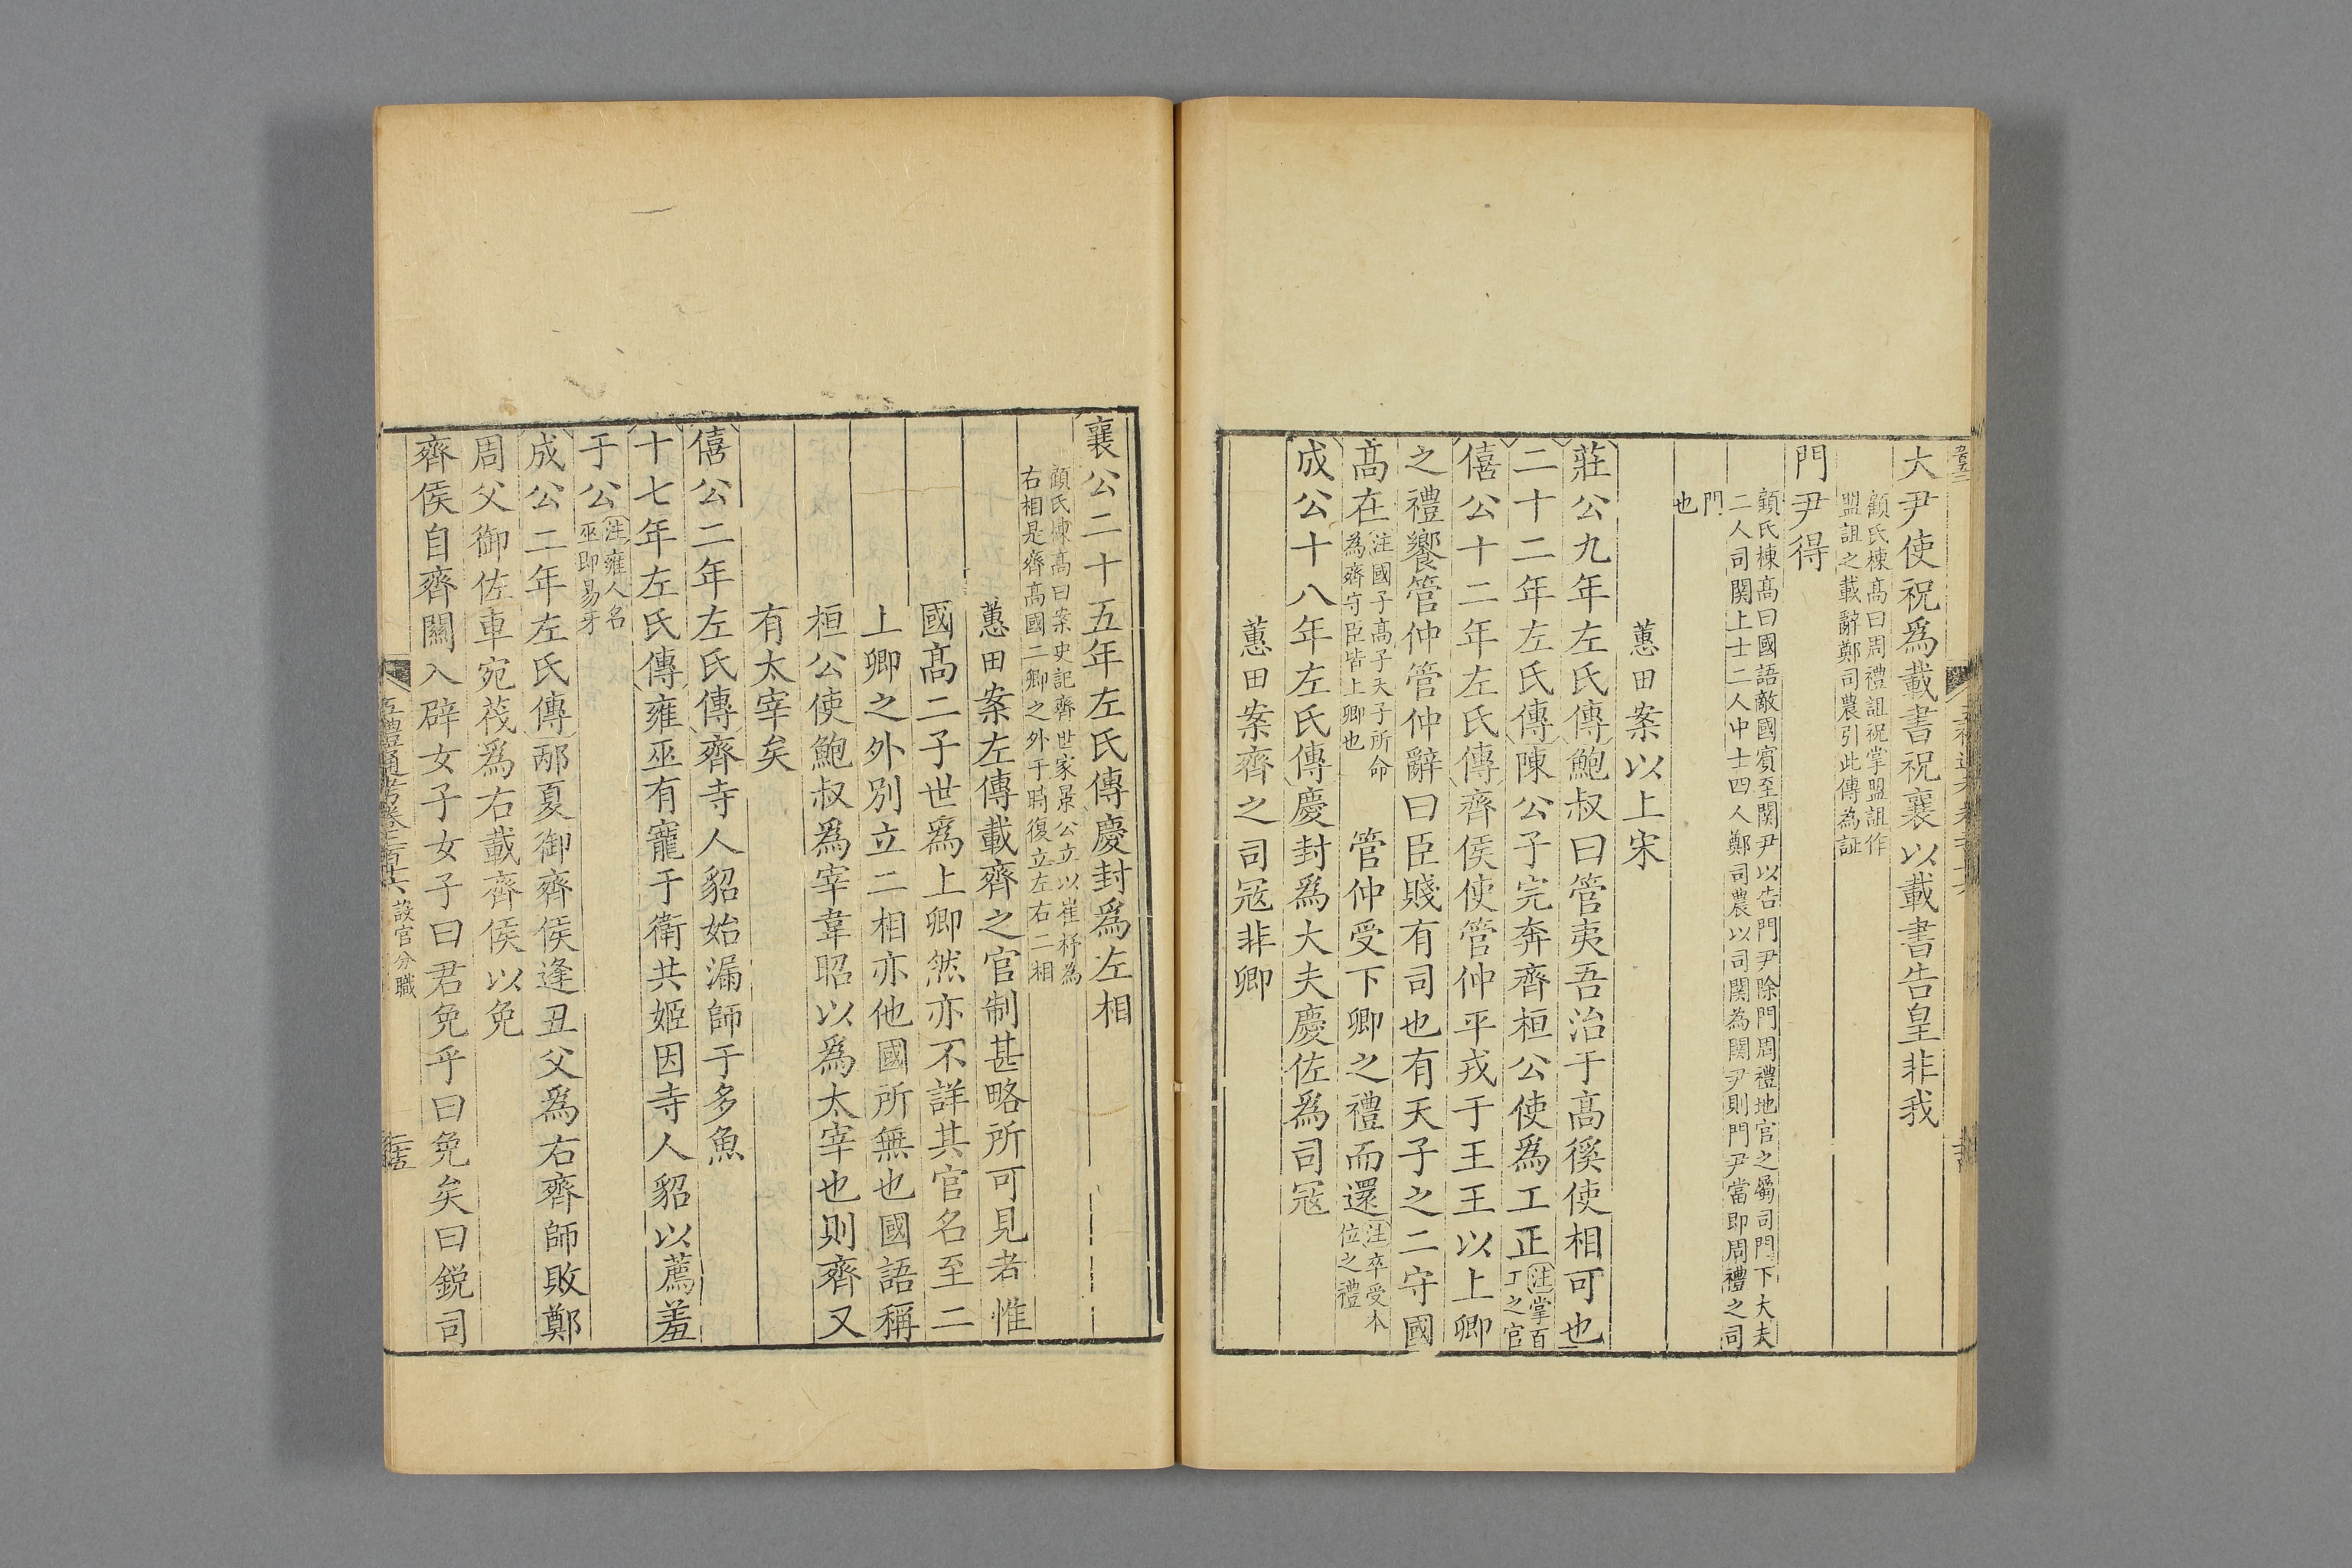 大尹使祝爲載書祝襄以載書告皇非我
顧氏棟高曰周禮詛祝掌盟詛作
盟詛之載辭鄭司農引此傳為証
門尹得
顧氏棟高曰國語敵國賓至関尹以告門尹除門周禮地官之屬司門下大夫
二人司関上士二人中士四人鄭司農以司関為関尹則門尹當即周禮之司
門
也
蕙田案以上宋
莊公九年左氏傳鮑叔曰管夷吾治于高徯使相可也
二十二年左氏傳陳公子完奔齊桓公使爲工正注掌百
工之官
僖公十二年左氏傳齊侯使管仲平戎于王王以上卿
之禮饗管仲管仲辭曰臣賤有司也有天子之二守國
高在注國子高子天子所命
為齊守臣皆上卿也
管仲受下卿之禮而還注卒受本
位之禮
成公十八年左氏傳慶封爲大夫慶佐爲司冦
蕙田案齊之司冦非卿
襄公二十五年左氏傳慶封爲左相
顧氏棟高曰案史記齊世家景公立以崔杼為
右相是齊高國二卿之外于時復立左右二相
蕙田案左傳載齊之官制甚略所可見者惟
國高二子世爲上卿然亦不詳其官名至二
上卿之外別立二相亦他國所無也國語稱
桓公使鮑叔爲宰韋昭以爲太宰也則齊又
有太宰矣
僖公二年左氏傳齊寺人貂始漏師于多魚
十七年左氏傳雍巫有寵于衛共姬因寺人貂以薦羞
于公注雍人名
巫即易牙
成公二年左氏傳邴夏御齊侯逢丑父爲右齊師敗鄭
周父御佐車宛茷爲右載齊侯以免
齊侯自齊關入辟女子女子曰君免乎曰免矣曰銳司
五禮通考卷二百十六 設官分職
二十五